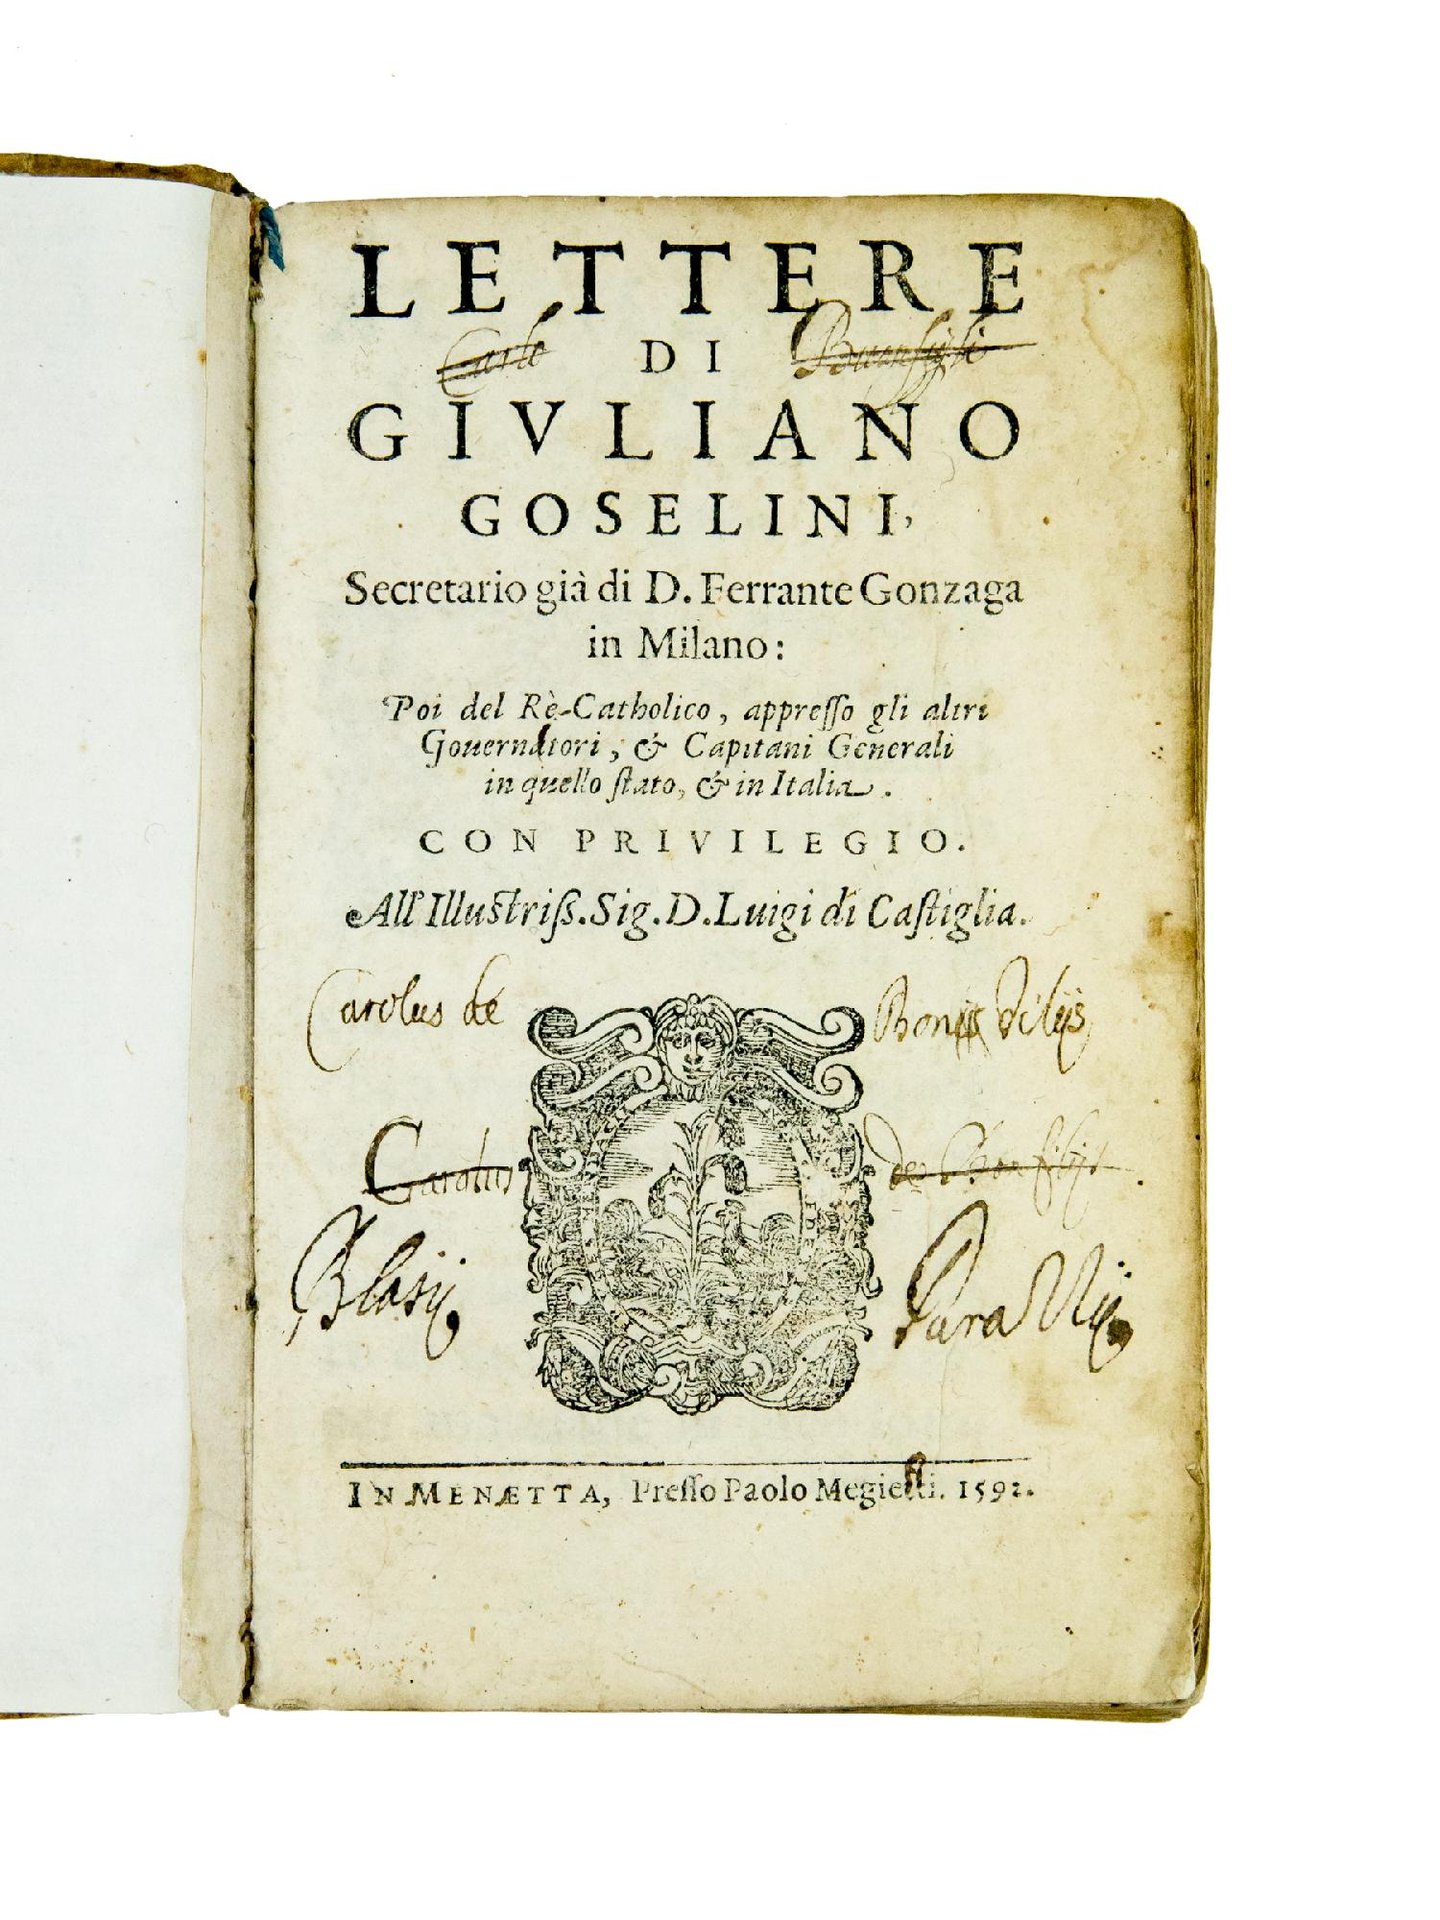 LETTERE
Carlo DI Buonfigli
GIVLIANO
GOSELINI,
Secretario già di D. Ferrante Gonzaga
in Milano:
Poi del Rè Catholico, appreſſo gli altri
Gouernatori, & Capitani Generali
in quello ſtato, & in Italia.
CON PRIVILEGIO.
All' Illuſtriſs. Sig. D. Luigi di Caſtiglia.
Carolus de Bonis filijs
Carolus de Bonfilijs
Blasij
IN MENÆTTA, Preſſo Paolo Megietti. 1592.